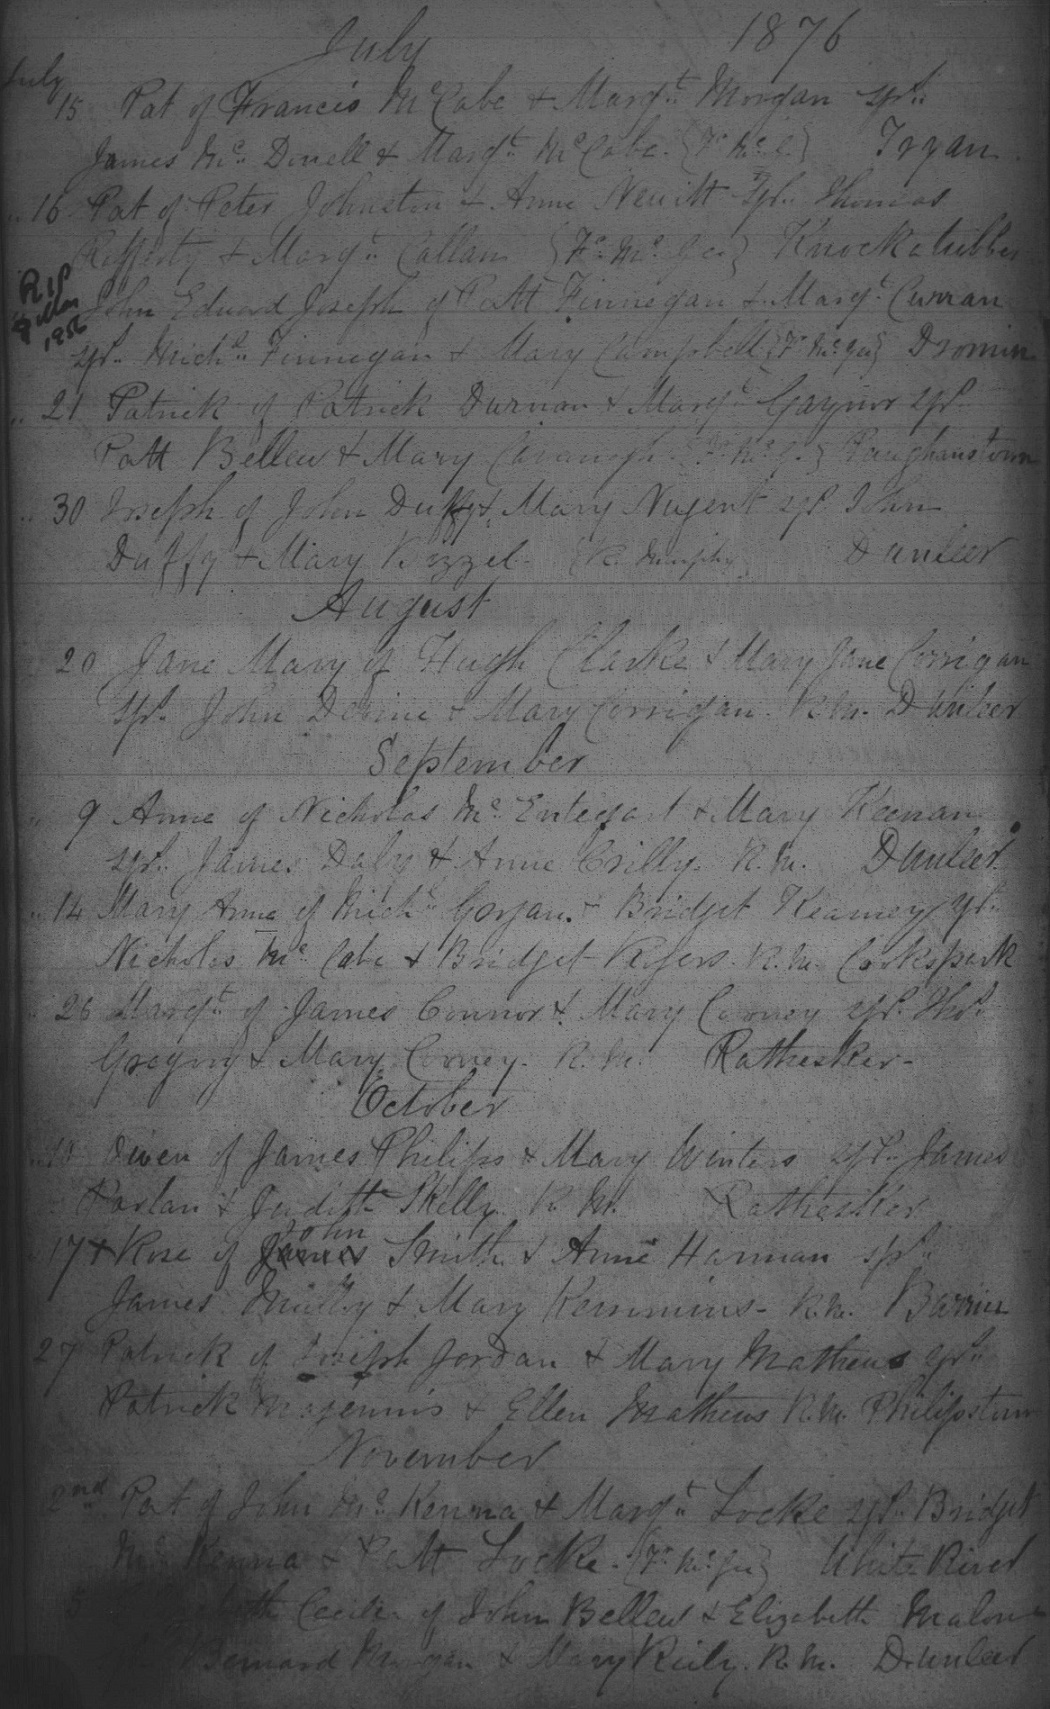 July 1876
July
15 Pat of Francis McCabe & Margt Morgan spr.
James Mc. Donell & Margt McCabe. {Fr. Mc. G.} Iryan.
" 16 Pat of Peter Johnston & Anne Spr. Thomas
Rafferty & Margt Callan {Fr. Mc. Gee} Knockatubber
R.I.P
1956
John Edward Joseph of Patt Finnegan & Margt Curran
spr. Michl. Finnegan & Mary Campbell {Fr. Mc. Gee} Dromin
" 21 Patrick of Patrick Durnan & Margt Gaynor spr.
Patt Bellew & Mary Cavanagh {Fr. Mc. G.} Paughanstown
" 30 Joseph of John Duffy & Mary Nugent spr. John
Duffy & Mary Bizzel. {R. Murphy} Dunleer
August
20 Jane Mary of Hugh Clarke & Mary Jane Corrigan
spr. John Devine & Mary Corrigan. R.M. Dunleer
September
" 9 Anne of Nicholas Mc. Entegart & Mary Keenan
spr. James Daly & Anne Crilly. R.M. Dunleer
" 14 Mary Anne of Michl. & Bridget Kearney spr.
Nicholas Mc Cabe & Bridget R.M. Cookspark
" 26 Margt of James Connor & Mary Corney spr. Thos.
Gregory & Mary Corney. R.M. Rathesker-
October
Owen of James Philips & Mary Winters spr. James
Parlan & Judith Skelly. R.M. Rathesker
John
17 + Rose of James Smith & Anne Harman spr.
James & Mary Kemmins - R.M. Barrin
27 Patrick of Joseph Jordan & Mary Mathews spr.
Patrick Magennis & Ellen Mathews R.M. Philipstown
November
2nd Pat of John Mc. Kenna & Margt Locke spr. Bridget
Mc Kenna & Patt Locke. {Fr. Mc. Gee} White River
5 Cecilia of John Bellew & Elizabeth Malone
Bernard & Mary Reily. R.M. Dunleer